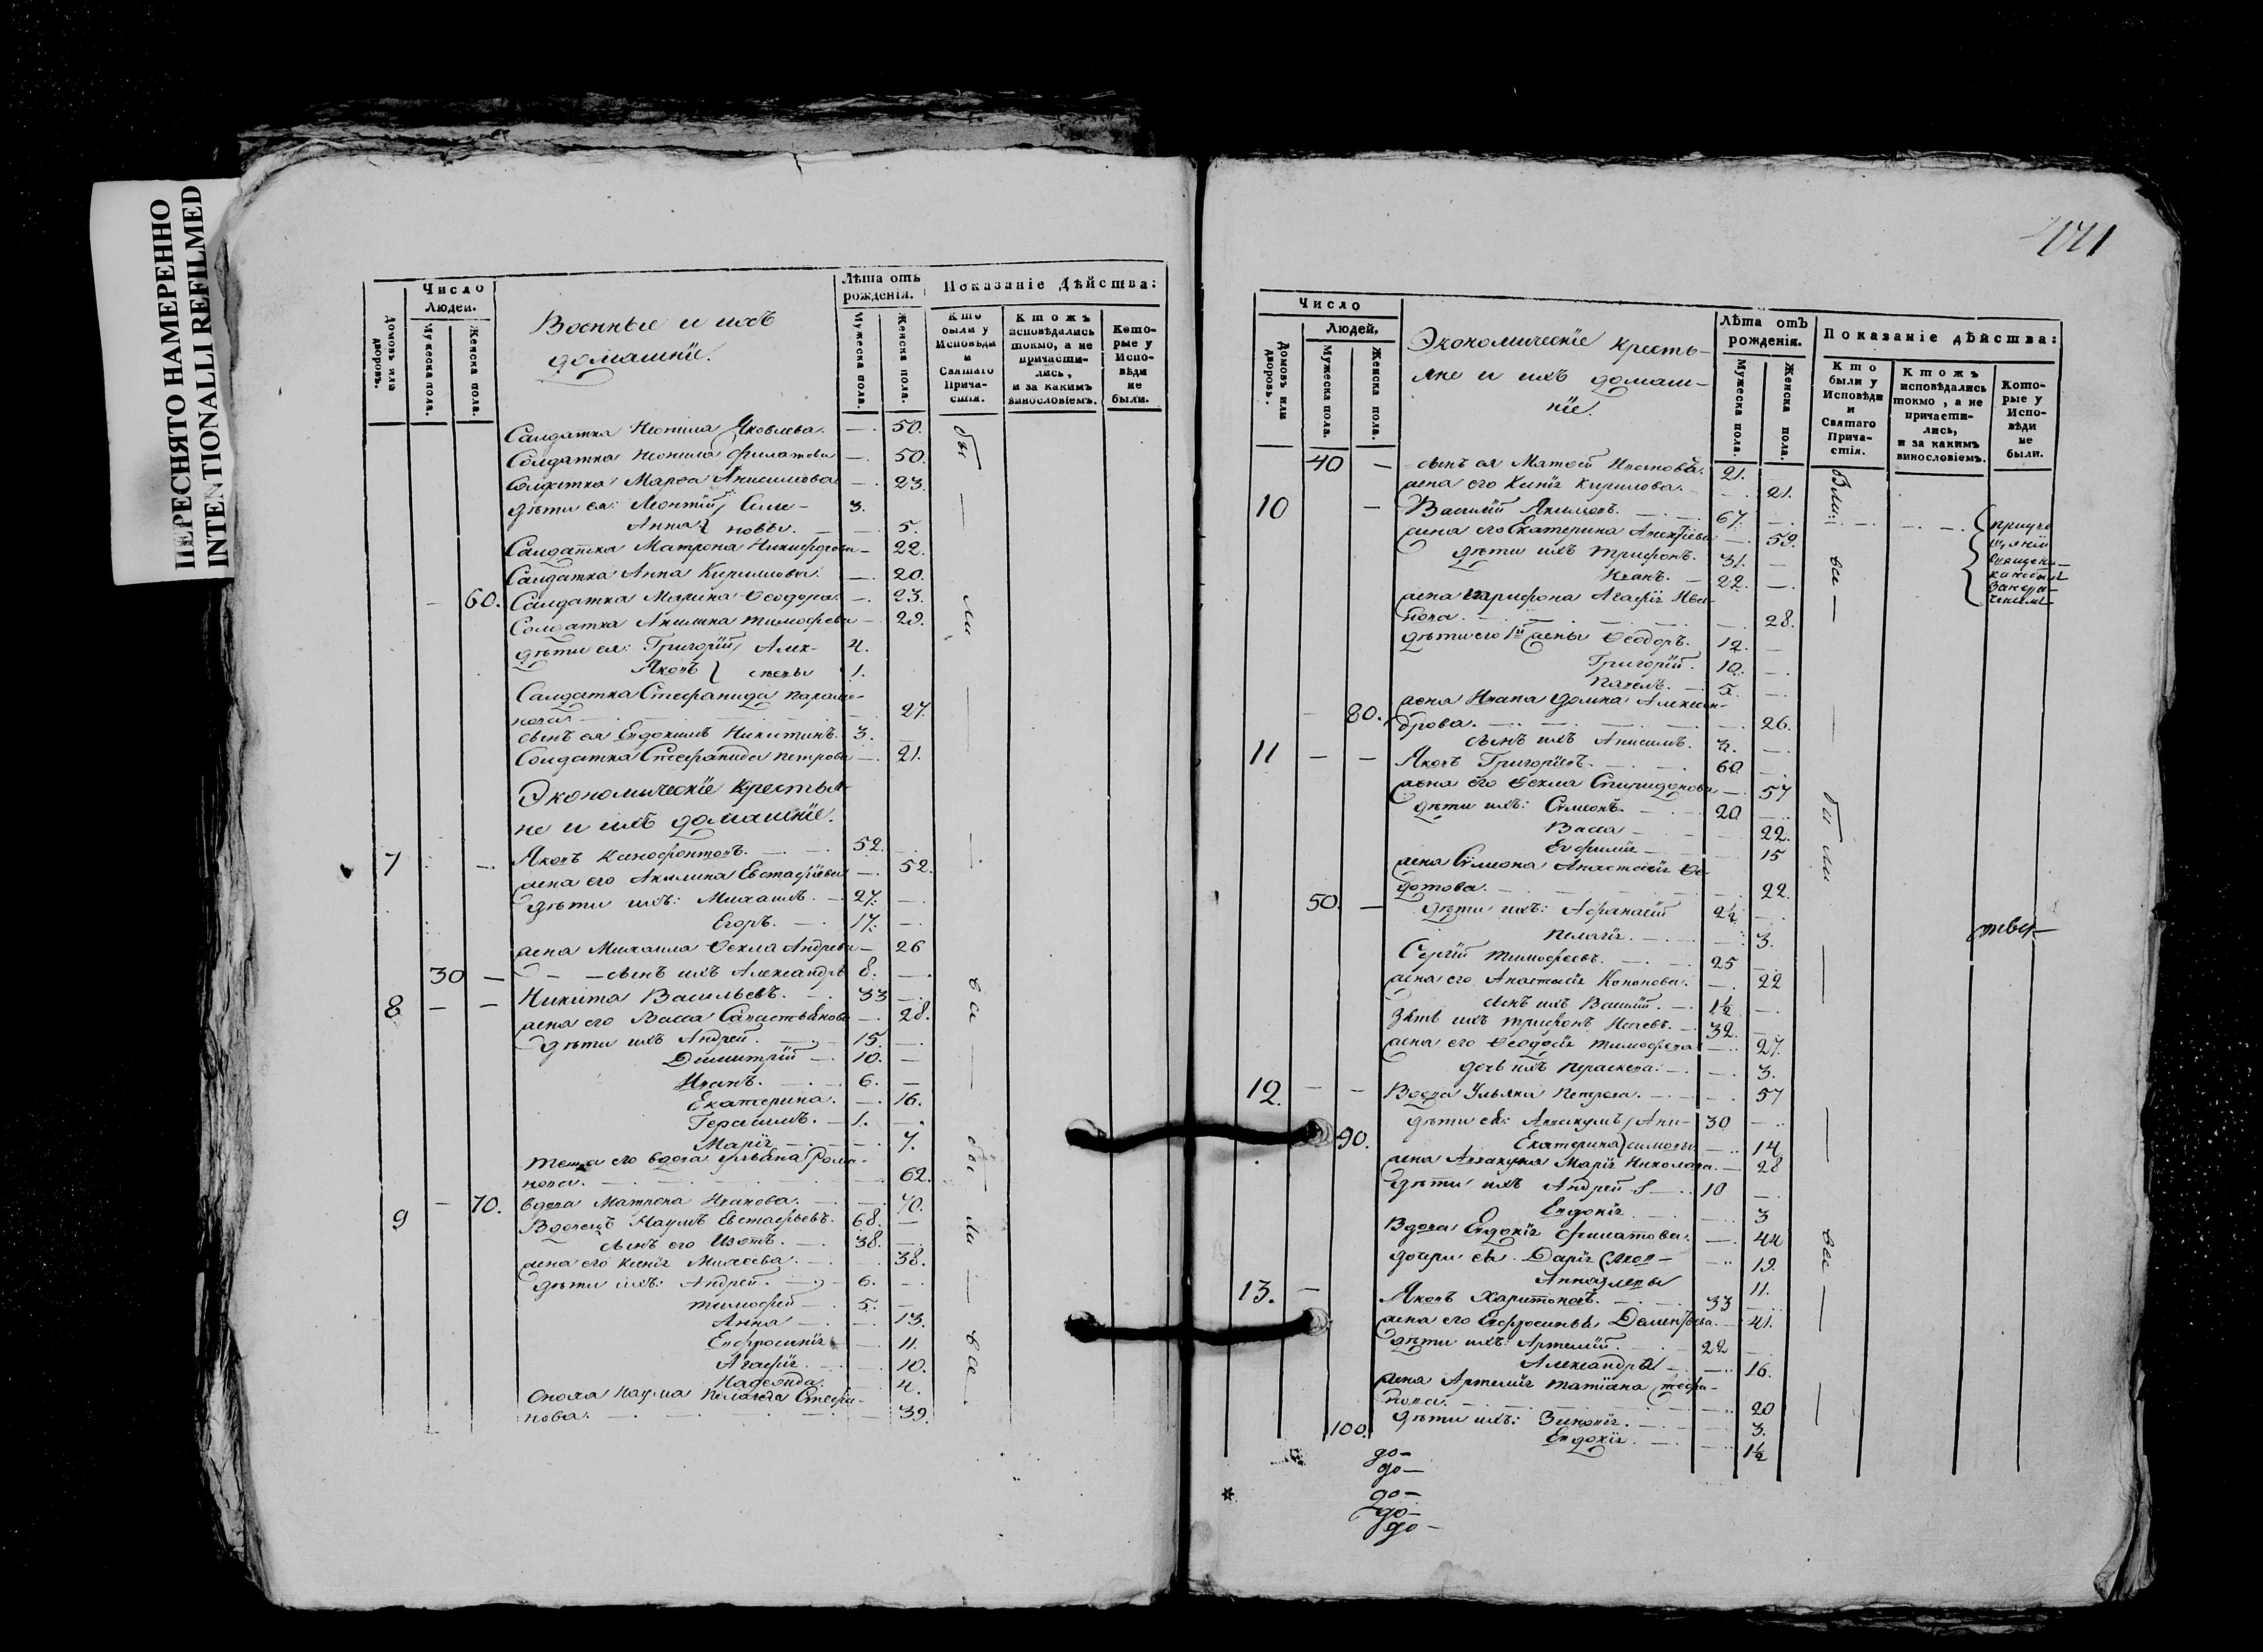 ПЕРЕСНЯТО НАМЕРЕННО
INTENTIONALLI REFILMED
Число
Людей.
Домовъ или дворовъ.
Мужеска пола.
Женска пола.
Военные и ихъ
домашніе.
Лѣта отъ
рожденія.
Мужеска пола.
Женска пола.
Показаніе Дѣйства:
Кто
были у
Исповѣди
и
Святаго
Прича-
стія.
Ктожъ
исповѣдались
токмо, а не
причасти-
лись,
и за какимъ
винословіемъ.
Кото-
рые у
Испо-
вѣди
не
были.
Салдатка Неонила Яковлева. — 50.
Солдатка Неонила Филатова — 50.
Солдатка Марѳа Анисимова — 23.
дѣти ея: Леонтій Симо- 3.
Анна новы. — 5.
Салдатка Матрона Никифорова — 22.
Салдатка Анна Кирилова. — 20.
60. Салдатка Марина Ѳеодора. — 23.
Солдатка Акилина Тимофева — 29.
дѣти ея: Григорій Алек- 4.
Яковъ сѣевы 1.
Салдатка Стефанида Парамо-
нова — 27.
сынъ ея Евдокимъ Никитинъ. 3.
Солдатка Стефанида Петрова — 21.
Экономическіе Крестья-
не и ихъ домашніе.
7 Яковъ Ксенофонтовъ. 52.
жена его Акилина Евстафіева — 52.
дѣти ихъ: Михаилъ. — 27.
Егоръ. — 17.
жена Михаила Ѳекла Андрева — 26
30 — сынъ ихъ Александръ 8.
8 — — Никита Васильевъ. 33
жена его Васса Савастьянова — 28.
дѣти ихъ Андрей. 15.
Димитрій — 10. —
Иванъ. — 6. —
Екатерина. — 16.
Герасимъ. — 1.
Марія — 7.
теща его вдова Ульяна Рома-
нова. — 62.
70. вдова Матрона Иванова. — 70.
9 Вдовецъ Наумъ Евстафьевъ. 68. —
сынъ его Изотъ. 38.
жена его Ксенія Михеева. — 38.
дѣти ихъ: Андрей. — 6.
Тимофей — 5. —
Анна — 13.
Евфросинія — 11.
Агафія. — 10.
Надежда. 4.
Сноха Наума Пелагея Стефа-
нова. — 39.
бы — ли — все — бы — ли — все
Число
Людей.
Домовъ или дворовъ.
Мужеска пола.
Женска пола.
Экономическіе кресть-
яне и ихъ домаш-
ніе.
Лѣта отъ
рожденія.
Мужеска пола.
Женска пола.
Показаніе дѣйства:
Кто
были у
Исповѣди
и
Святаго
Прича-
стія.
Ктожъ
исповѣдались
токмо, а не
причасти-
лись,
и за какимъ
винословіемъ.
Кото-
рые у
Испо-
вѣди
не
были.
40 — сынъ ея Матѳей Ивановъ. 21.
жена его Ксенія Кирилова. — 21.
10 — Василій Якимовъ. 67.
жена его Екатерина Алексѣева — 59.
дѣти ихъ Трифонъ. 31. —
Иванъ. — 22. —
жена Трифона Агафія Ива-
нова. — 28.
дѣти его 1й жены Ѳеодоръ. 12. —
Григорій. 10. —
Павелъ. — 5. —
80. жена Ивана Домна Алексан-
дрова. — 26.
сынъ ихъ Анисимъ. 3. —
11 — — Яковъ Григорьевъ. 60.
жена его Ѳекла Спиридонова — 57
дѣти ихъ: Симеонъ. 20
Васса — 22.
Евфимія — 15
жена Симеона Анастасія Ѳе-
дотова. — 22.
50. — дѣти ихъ: Афанасій 2½
Пелагія. — 3.
Сергій Тимофеевъ. 25
жена его Анастасія Кононова. — 22
сынъ ихъ Василій. — 1½ —
Зять ихъ Трифонъ Исаевъ. — 32.
жена его Ѳеодосія Тимофеева — 27.
дочь ихъ Параскева. — 3.
12. — — Вдова Ульяна Петрова. — 57
дѣти ея: Аввакумъ Ани- 30
90. Екатерина симовы — 14
жена Аввакума Марія Николаева. — 28
дѣти ихъ Андрей — 10
Евдокія 3
Вдова Евдокія Филатова. — 44
дочери ея. Дарія Яков- — 19.
Анна левы 11.
13. — Яковъ Харитоновъ. 33
жена его Евфросинія Дементьева. — 41.
дѣти ихъ: Артемій. 22
Александра — 16.
жена Артемія Татіана Стефа-
нова. — 20
100. дѣти ихъ: Зиновія. — 3.
Евдокія. — 1½
все — были — все —
твер-
до —
до —
до —
до —
до —